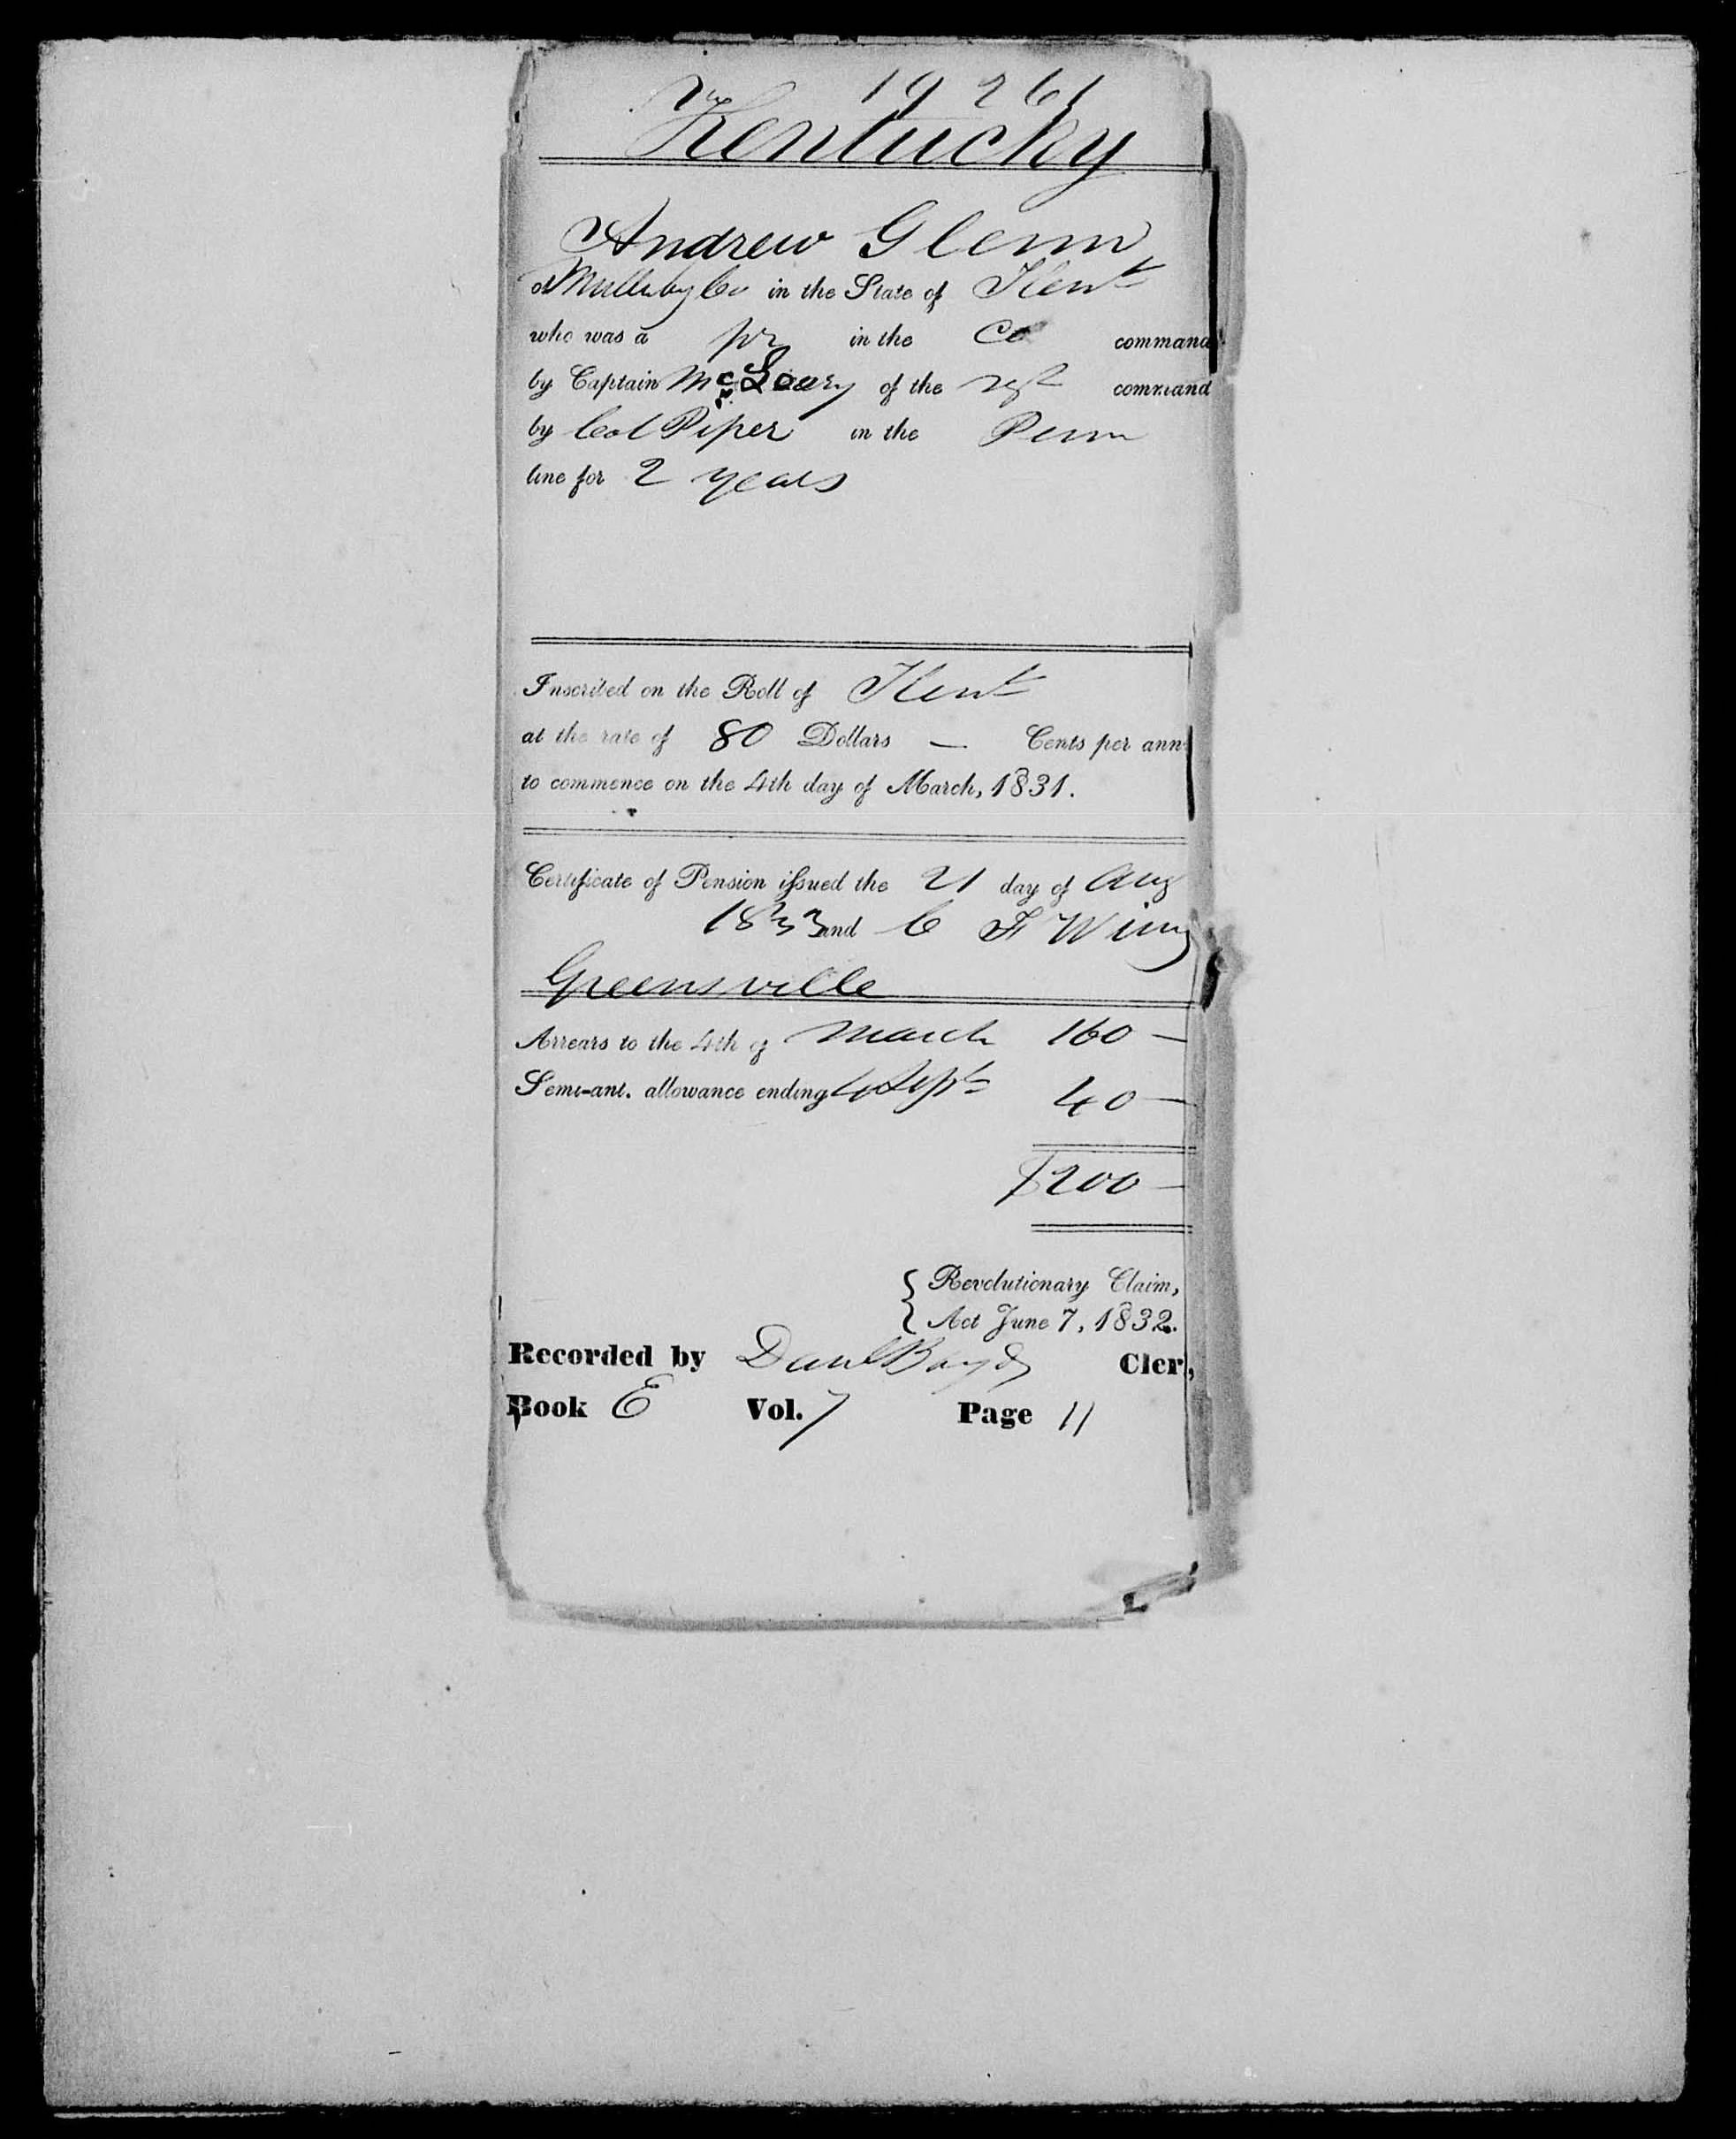 19261
Kentucky
Andrew Glenn
of Muhlenbg Co in the State of Kent
who was a pr in the Co command
by Captain of the regt command
by Col Piper in the Penn
line for 2 years
Inscribed on the Roll of Kent
at the rate of 80 Dollars — Cents per ann
to commence on the 4th day of March, 1831.
Certificate of Pension issued the 21 day of Aug
1833 and C F Wing
Greensville
Arrears to the 4th of March 160 —
Semi-anl. allowance ending 4 Sept 40 —
$200 —
Revolutionary Claim,
Act June 7, 1832.
Recorded by Danl Boyd Cler,
Book E Vol. 7 Page 11